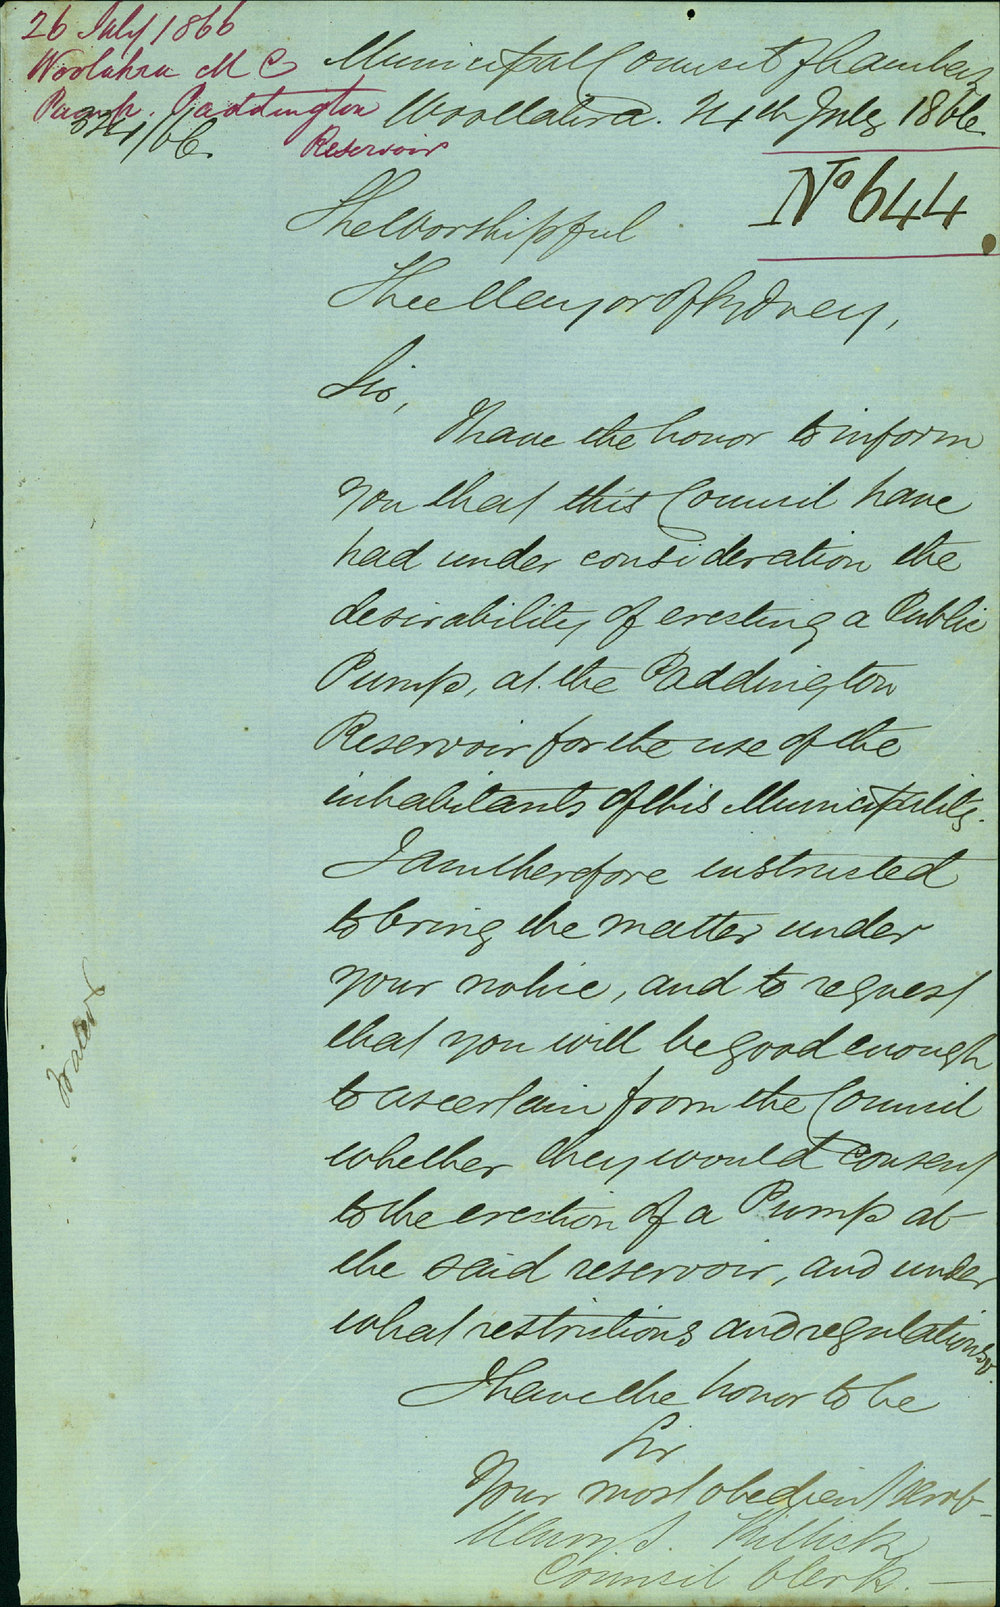 26 July 1866
Woolahra M C
Pump. Paddington
Reservoir
324/66.
Municipal Council Chambers
Woollahra. 24th July 1866.
No 644.
The Worshipful
The Mayor of Sydney,
Sir,
I have the honor to inform
you that this Council have
had under consideration the
desirability of erecting a Public
Pump, at the Paddington
Reservoir for the use of the
inhabitants of this Municipality.
I am therefore instructed
to bring the matter under
your notice, and to request
that you will be good enough
to ascertain from the Council
whether they would consent
to the erection of a Pump at
the said reservoir, and under
what restrictions and regulations
I have the honor to be
Sir
Your most obedient Servt
Killick
Council Clerk.
Water